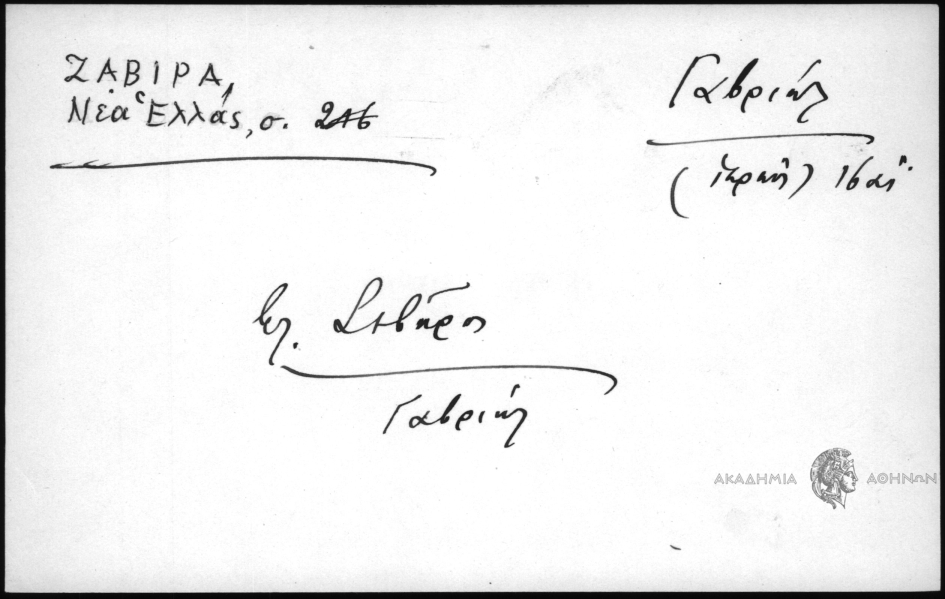 ΖΑΒΙΡΑ,
Νέα Ἑλλάς, σ. 246
Γαβριήλ
16 αἰ.
βλ. Σεβῆρος
Γαβριήλ
ΑΚΑΔΗΜΙΑ ΑΘΗΝΩΝ